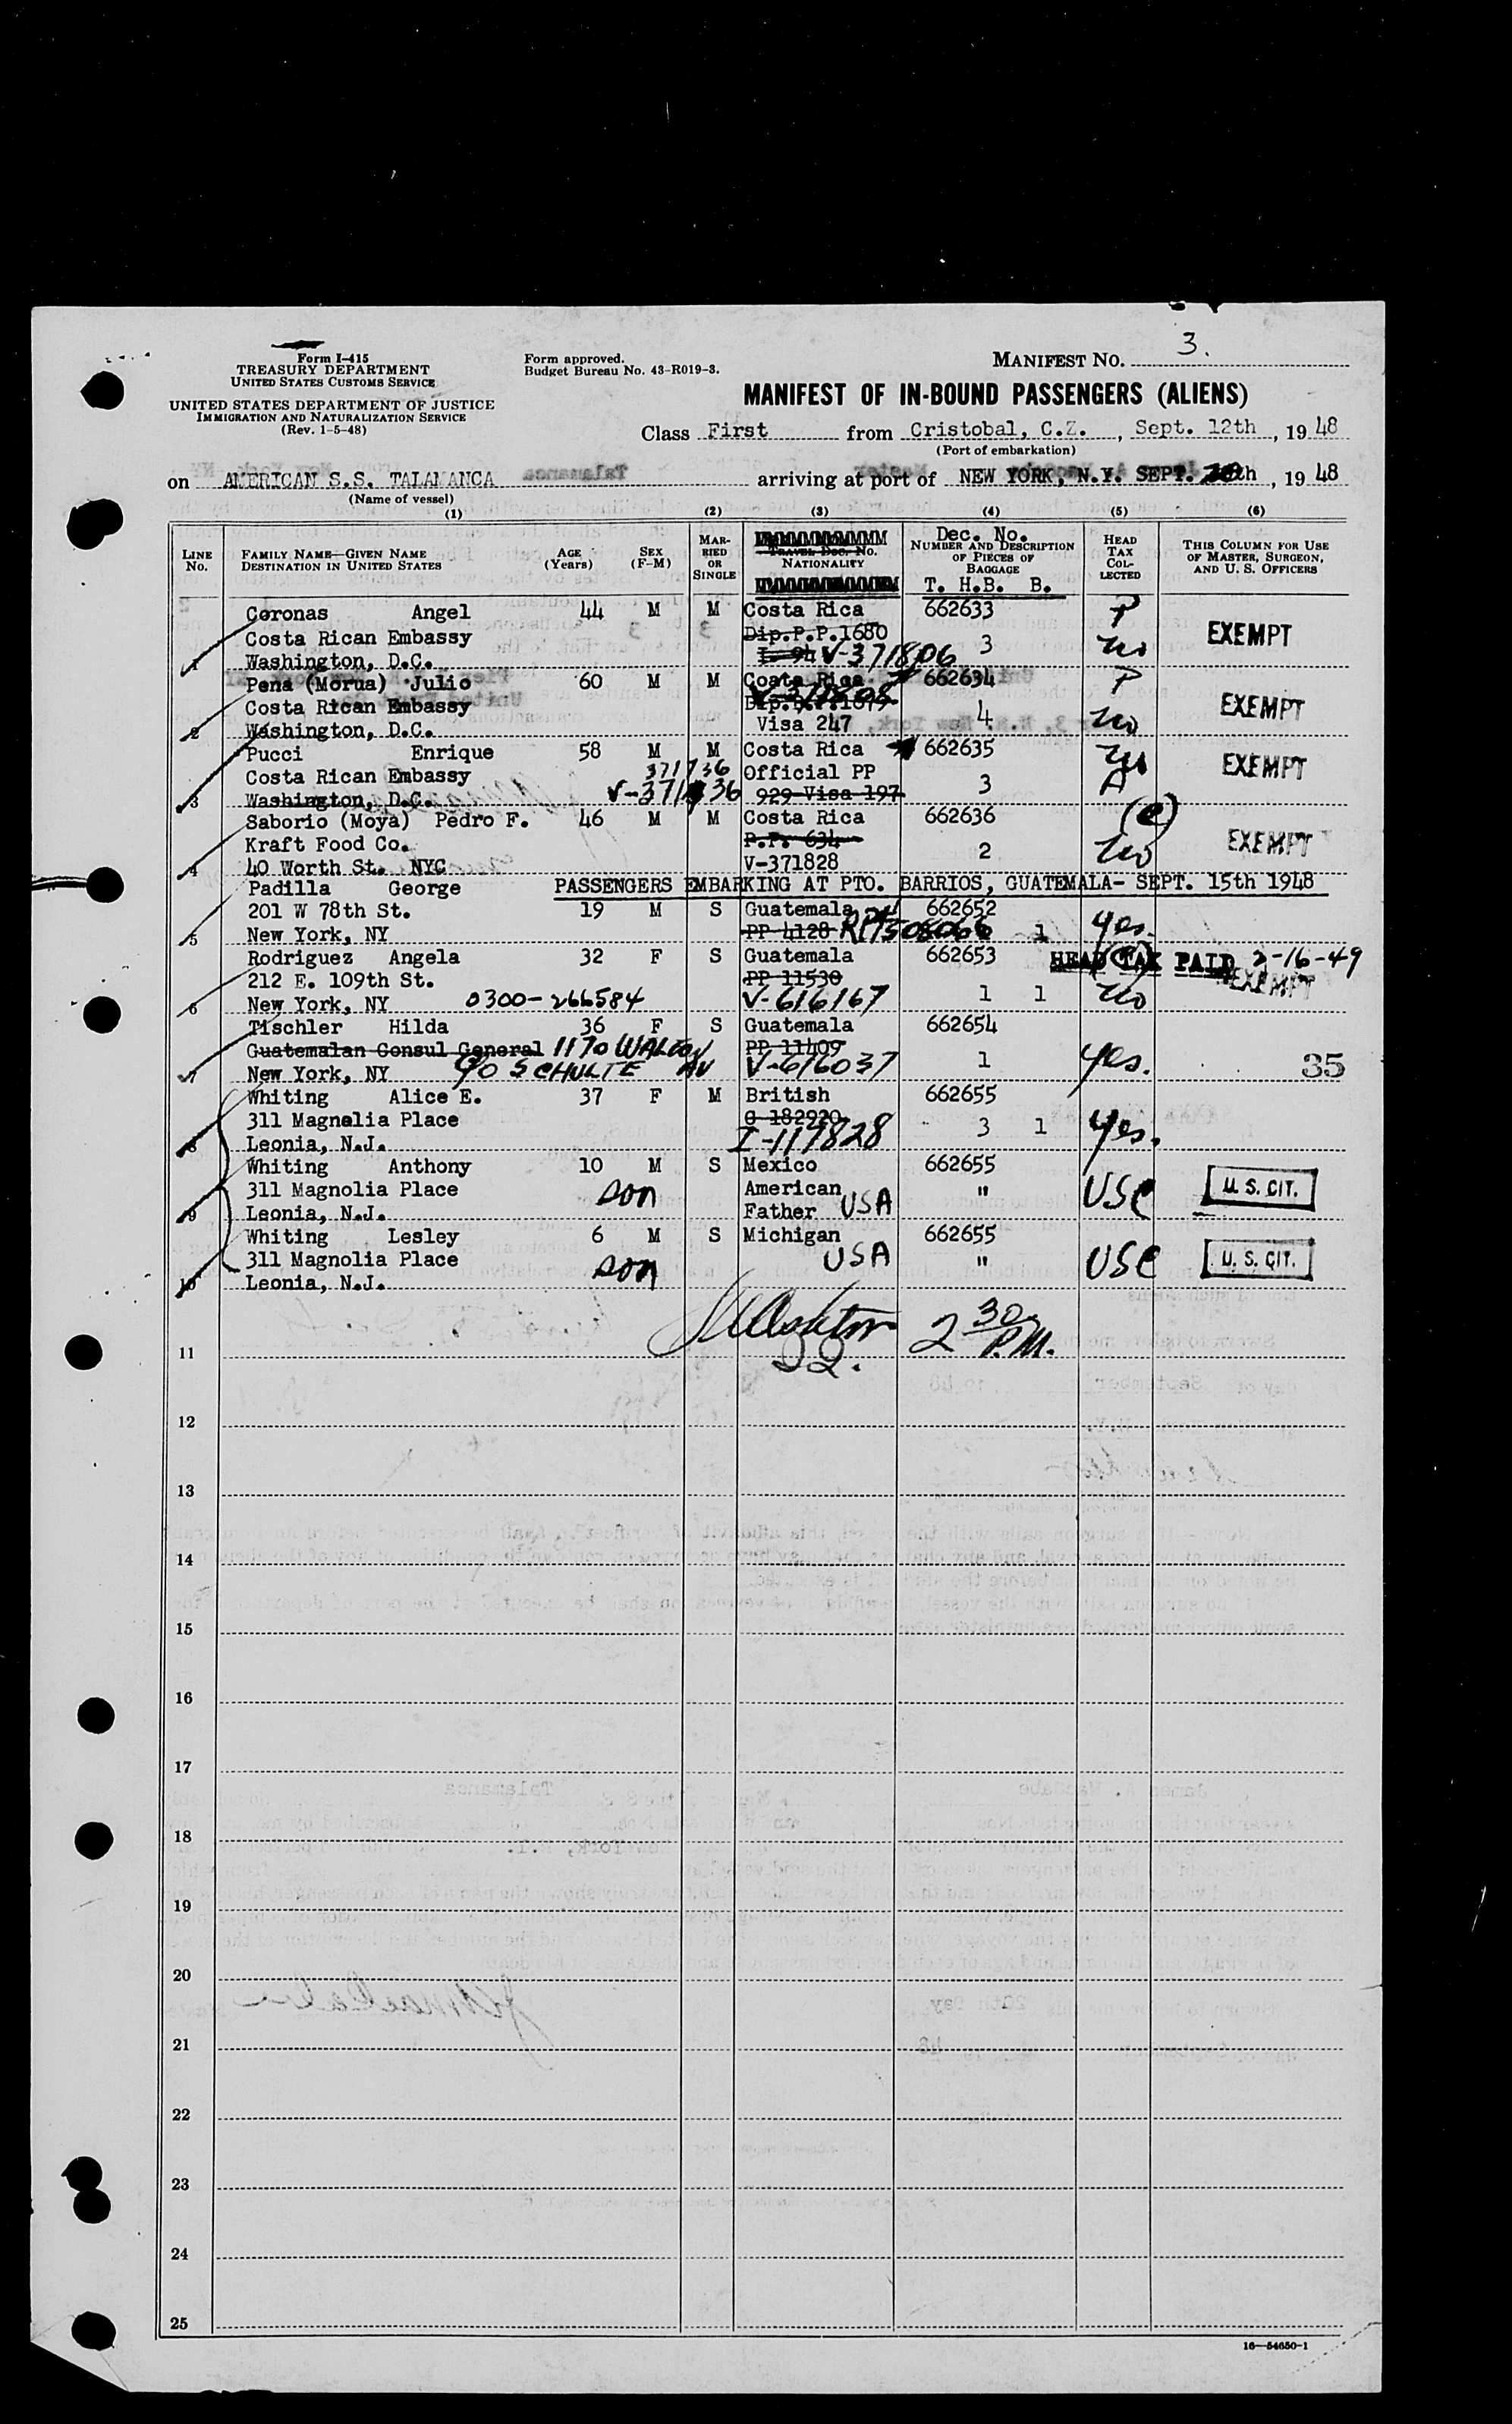 Form I-415
TREASURY DEPARTMENT
UNITED STATES CUSTOMS SERVICE
UNITED STATES DEPARTMENT OF JUSTICE
IMMIGRATION AND NATURALIZATION SERVICE
(Rev. 1-5-48)
Form approved.
Budget Bureau No. 43-R019-3.
MANIFEST NO. 3.
MANIFEST OF IN-BOUND PASSENGERS (ALIENS)
Class First from Cristobal, C.Z. , Sept. 12th , 19 48
(Port of embarkation)
on AMERICAN S.S. TALAMANCA arriving at port of NEW YORK, N.Y. SEPT. th , 19 48
(Name of vessel)
(1) (2) (3) (4) (5) (6)
LINE No.
FAMILY NAME—GIVEN NAME
DESTINATION IN UNITED STATES
AGE (Years)
SEX (F-M)
MARRIED OR SINGLE
TRAVEL DOC. NO.
NATIONALITY
Dec. No.
NUMBER AND DESCRIPTION OF PIECES OF BAGGAGE
T. H.B. B.
HEAD TAX COLLECTED
THIS COLUMN FOR USE OF MASTER, SURGEON, AND U. S. OFFICERS
Coronas Angel 44 M M Costa Rica 662633 P
Costa Rican Embassy Dip.P.P.1680 3 EXEMPT
1 Washington, D.C. I-94 V-371806 no
Pena (Morua) Julio 60 M M Costa Rica 662634 P
Costa Rican Embassy Dip.P.P.1679 4 EXEMPT
2 Washington, D.C. Visa 247 no
Pucci Enrique 58 M M Costa Rica 662635 no
Costa Rican Embassy 371736 Official PP 3 A EXEMPT
3 Washington, D.C. 929 Visa 197
Saborio (Moya) Pedro F. 46 M M Costa Rica 662636 (e)
Kraft Food Co. P.P. 634 2 no EXEMPT
4 40 Worth St. NYC V-371828
PASSENGERS EMBARKING AT PTO. BARRIOS, GUATEMALA- SEPT. 15th 1948
Padilla George
201 W 78th St. 19 M S Guatemala 662652
5 New York, NY PP 4128 1 yes.
Rodriguez Angela 32 F S Guatemala 662653 HEAD TAX PAID 2-16-49
212 E. 109th St. PP 11530 EXEMPT
6 New York, NY 0300-266584 V-616167 1 1 no
Tischler Hilda 36 F S Guatemala 662654
Guatemalan Consul General 1170 WALTON AV PP 11409 1 yes. 35
7 New York, NY C/O SCHULTE V-616037
Whiting Alice E. 37 F M British 662655
311 Magnolia Place C 182920 3 1 yes.
8 Leonia, N.J. I-117828
Whiting Anthony 10 M S Mexico 662655
311 Magnolia Place son American " USC U. S. CIT.
9 Leonia, N.J. Father USA
Whiting Lesley 6 M S Michigan 662655
311 Magnolia Place son USA " USC U. S. CIT.
10 Leonia, N.J.
2 30 P.M.
11
12
13
14
15
16
17
18
19
20
21
22
23
24
25
16—54650-1